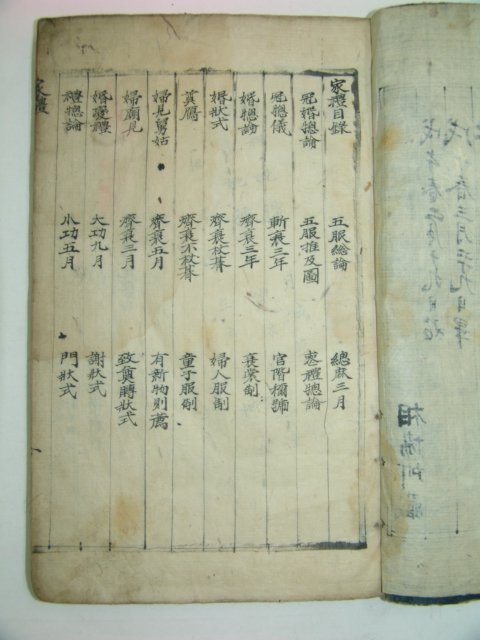 家禮目錄 五服総論 緦麻三月
冠婚總論 五服推及圖 喪禮總論
冠禮儀 斬衰三年 官階稱號
婚禮總論 齊衰三年
婚狀式 齊衰杖朞 婦人服制
奠鴈 齊衰不杖朞 童子服制
婦見舅姑 齊衰五月 有新物則薦
婦廟見 齊衰三月 致奠賻狀式
婚變禮 大功九月 謝狀式
禮總論 小功五月 門狀式
家禮